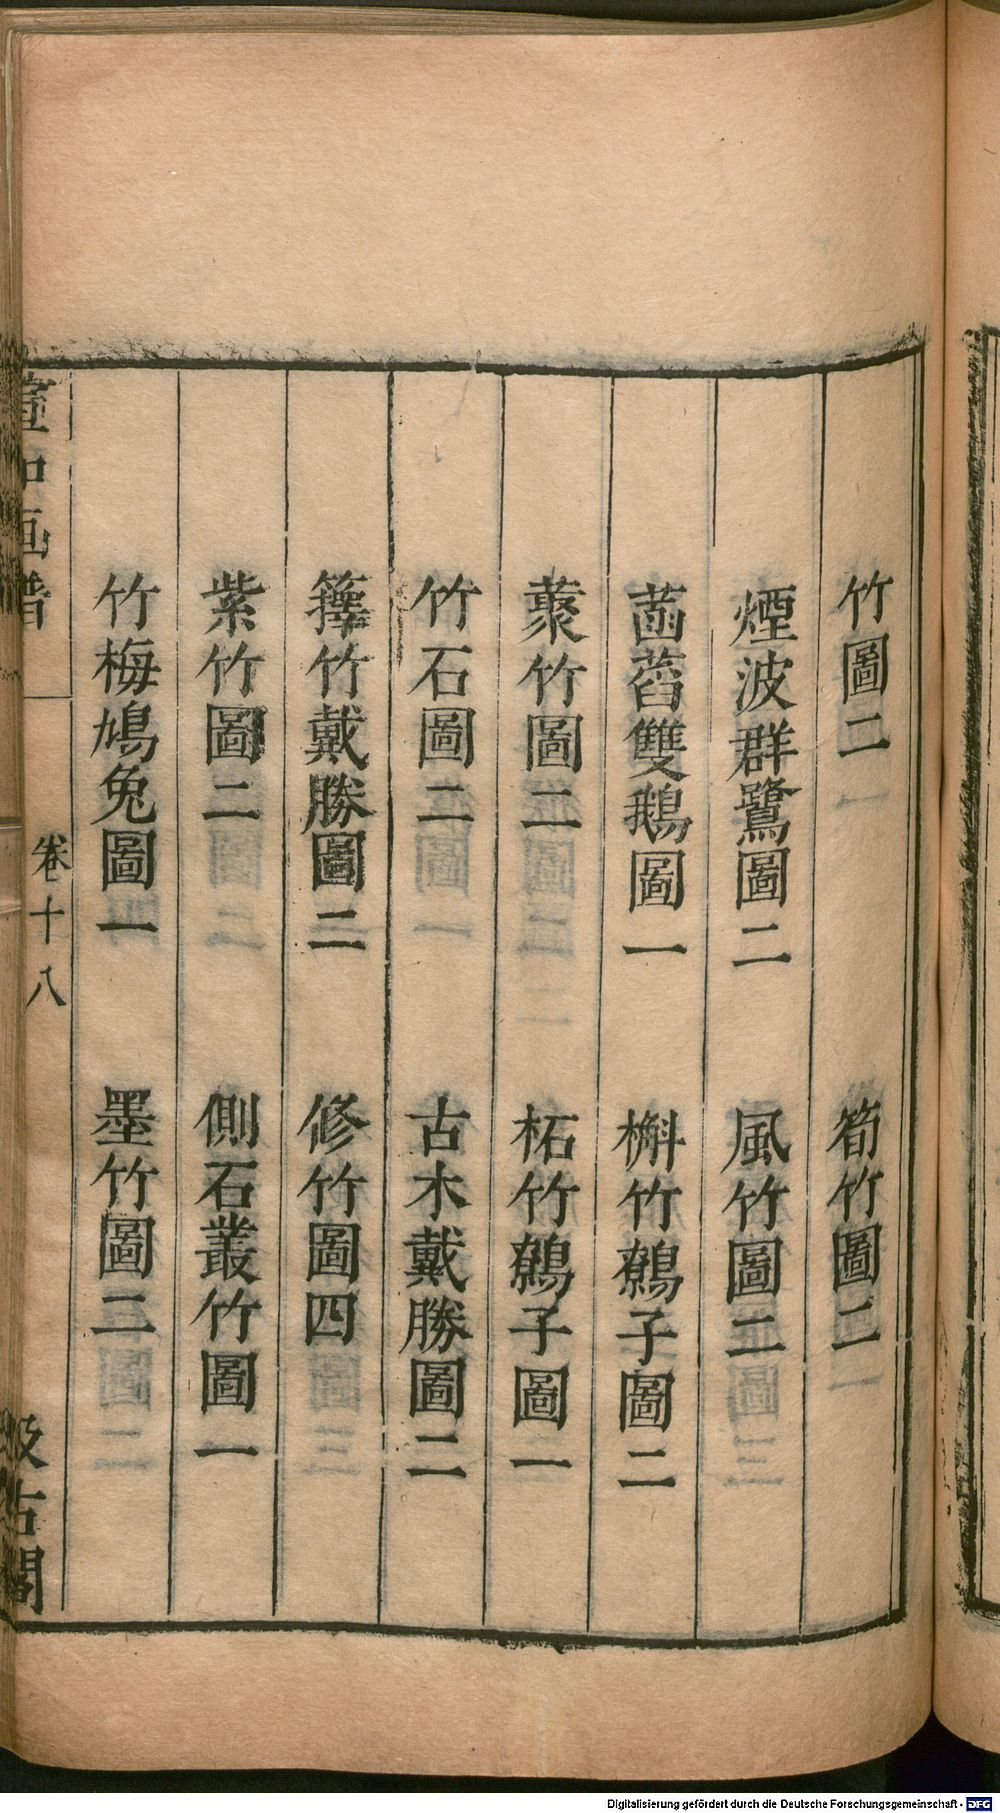 竹圖二　筍竹圖二
煙波群鷺圖二　風竹圖二
菡萏雙鵝圖一　槲竹鷯子圖二
藂竹圖二　柘竹鷯子圖一
竹石圖二　古木戴勝圖二
籜竹戴勝圖二　修竹圖四
紫竹圖二　側石叢竹圖一
竹梅鳩兔圖一　墨竹圖二
宣和画譜　卷十八　汲古閣
Digitalisierung gefördert durch die Deutsche Forschungsgemeinschaft - DFG